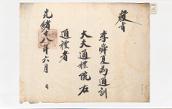 敎旨
李舜夏爲通訓
大夫通禮院左
通禮者
光緖十八年六月 日